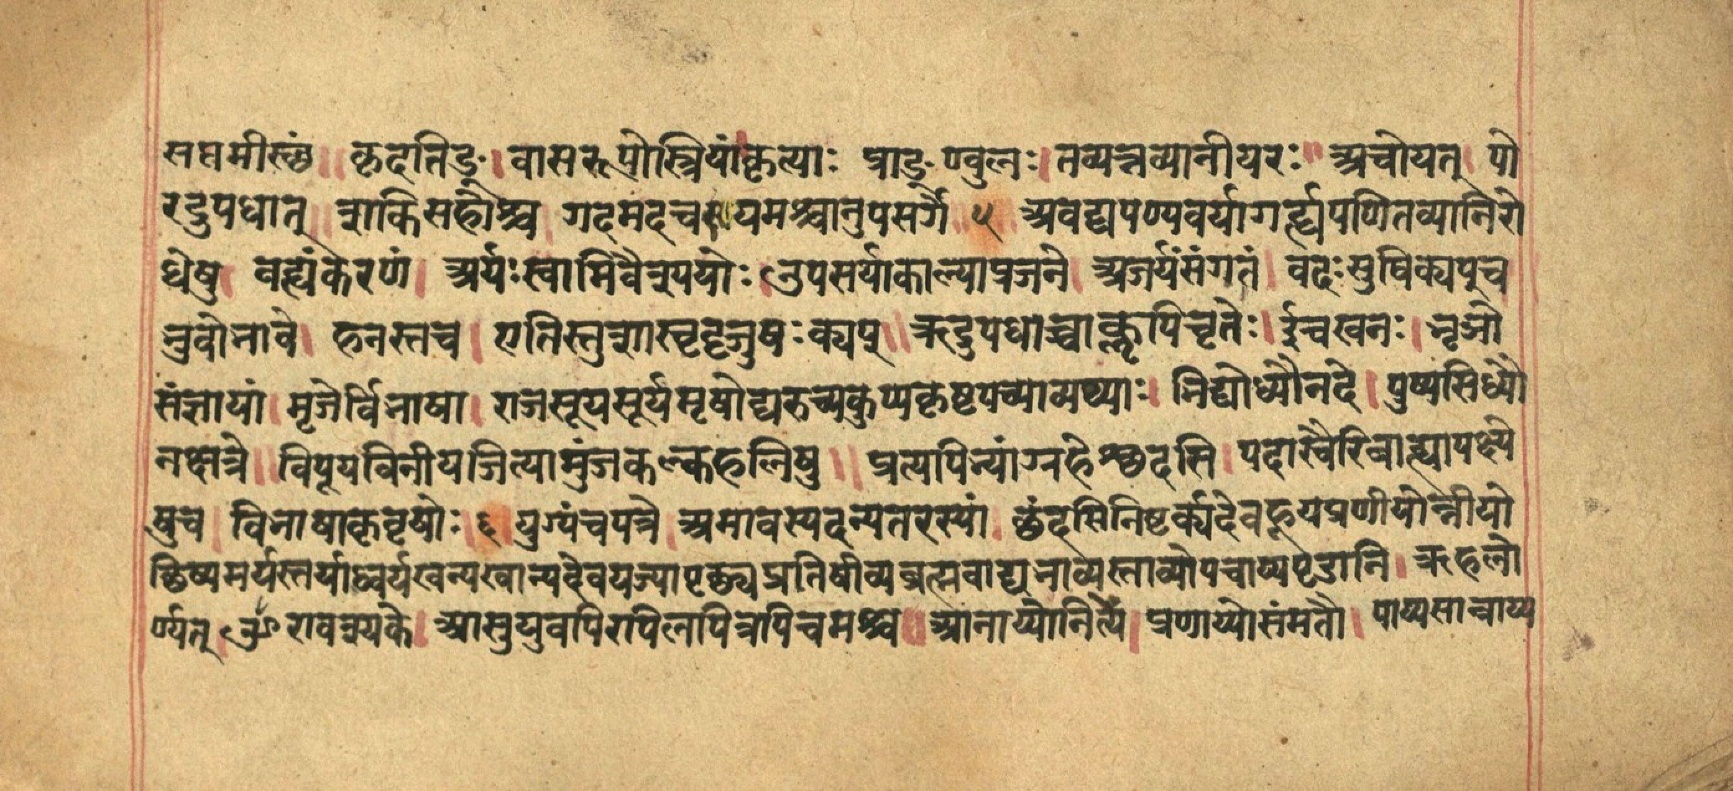 सप्तमीस्थं ॥ कृदतिङ् । वासरूपोस्त्रियां । कृत्याः प्राङ् ण्वुलः । तव्यत्तव्यानीयरः ॥ अचोयत् । पो
रदुपधात् ॥ शकिसहोश्च । गदमदचरयमश्चानुपसर्गे ॥ ५ अवद्यपण्यवर्यागर्ह्यपणितव्यानिरो
धेषु । वह्यंकरणं । अर्यःस्वामिवैश्ययोः । उपसर्याकाल्याप्रजने । अजर्यंसंगतं । वदःसुपिक्यप्च
भुवोभावे । हनस्तच । एतिस्तुशास्वृदृजुषःक्यप् ॥ ऋदुपधाच्चाक्लृपिचृतेः । ईचखनः । भृञो
संज्ञायां । मृजेर्विभाषा । राजसूयसूर्यमृषोद्यरुच्यकुप्यकृष्टपच्याव्यथ्याः । भिद्योध्यौनदे । पुष्यसिध्यौ
नक्षत्रे ॥ विपूयविनीयजित्यामुंजकल्कहलिषु ॥ प्रत्यपिभ्यांग्रहेश्छदसि । पदास्वैरिबाह्यापक्ष्ये
षुच । विभाषाकृवृषोः । ६ युग्यंचपत्रे । अमावस्यदन्यतरस्यां । छंदसिनिष्टर्क्यदेवहूयप्रणीयोन्नीयो
छिष्यमर्यस्तर्याध्वर्यखन्यखान्यदेवयज्यापृछ्यप्रतिषीव्यब्रह्मवाद्यभाव्यस्ताव्योपचाय्यपृडानि । ऋहलो
र्ण्यत् । ओरावश्यके । आसुयुवपिरपिलपित्रपिचमश्च ॥ आनाय्योनित्ये । प्रणाय्योसंमतौ । पाय्यसान्नाय्य